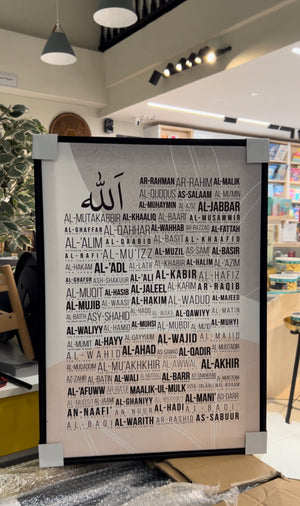 الله
AR-RAHMAN AR-RAHIM AL-MALIK
AL-QUDDUS AS-SALAAM AL-MU'MIN
AL-MUHAYMIN AL-AZIZ AL-JABBAR
AL-MUTAKABBIR AL-KHAALIQ AL-BAARI AL-MUSAWWIR
AL-GHAFFAR AL-QAHHAAR AL-WAHHAB AR-RAZZAQ AL-FATTAH
AL-'ALIM AL-QAABID AL-BASIT AL-KHAAFID
AL-RAFI AL-MU'IZZ AL-MUZIL AS-SAMI' AL-BASIR
AL-HAKAM AL-'ADL AL-LATIF AL-KHABIR AL-HALIM AL-AZIM
AL-GHAFUR ASH-SHAKUUR AL-'ALI AL-KABIR AL-HAFIZ
AL-MUQIT AL-HASIB AL-JALEEL AL-KARIM AR-RAQIB
AL-MUJIB AL-WAASI AL-HAKIM AL-WADUD AL-MAJEED
AL-BAITH ASY-SHAHID AL-WAKIL AL-QAWIYY AL-MATIN
AL-WALIYY AL-HAMID AL-MUHSI AL-MUBDI AL-MUHYI
AL-MUMIT AL-HAYY AL-QAYYUUM AL-WAJID AL-MAJID
AL-WAHID AL-AHAD AS-SAMAD AL-QADIR
AL-MUQADDIM AL-MU'AKHKHIR AL-AWWAL AL-AKHIR
AZ-ZAHIR AL-BATIN AL-WALI AL-BARR
AL-'AFUWW AR-RAUF MAALIK-UL-MULK
AL-MUQSIT AL-JAAMI AL-GHANIYY AL-MUGHNI AL-MANI' AD-DARR
AN-NAAFI' AN-NUUR AL-HADI AL-BADI
AL-BAQI AL-WARITH AR-RASHID AS-SABUUR